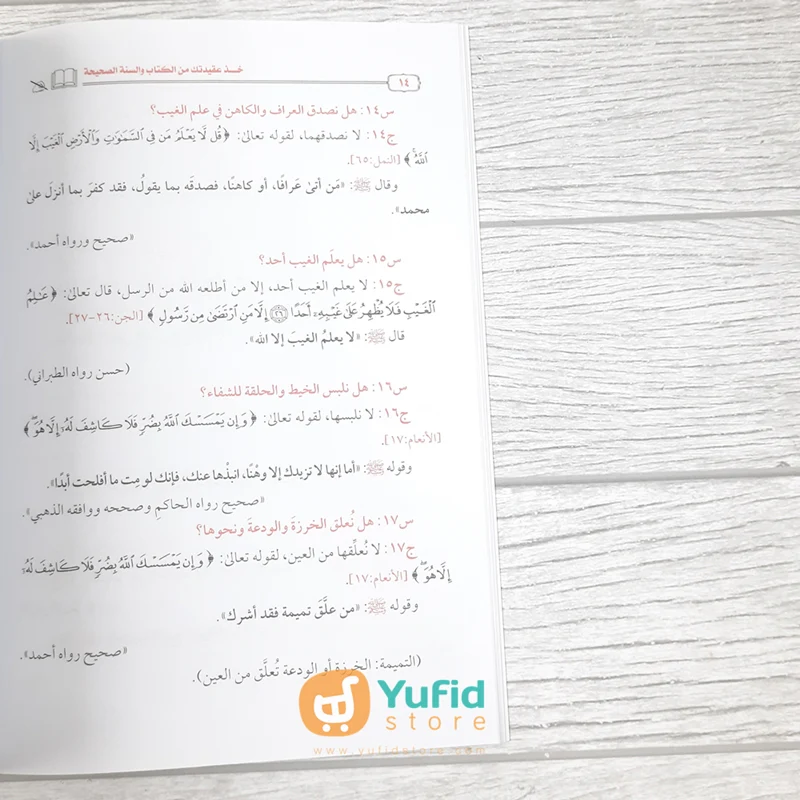 خـــذ عقيدتك من الكتاب والسنة الصحيحة
١٤
س١٤: هل نصدق العراف والكاهن في علم الغيب؟
ج١٤: لا نصدقهما، لقوله تعالىٰ: ﴿قُل لَّا يَعْلَمُ مَن فِي ٱلسَّمَٰوَٰتِ وَٱلْأَرْضِ ٱلْغَيْبَ إِلَّا
ٱللَّهُ﴾ [النمل:٦٥].
وقال ﷺ: «مَن أتىٰ عَرافًا، أو كاهنًا، فصدقَه بما يقولُ، فقد كفرَ بما أنزلَ علىٰ
محمد».
«صحيح ورواه أحمد».
س١٥: هل يعلَم الغيب أحد؟
ج١٥: لا يعلم الغيب أحد، إلا من أطلعه الله من الرسل، قال تعالىٰ: ﴿عَٰلِمُ
ٱلْغَيْبِ فَلَا يُظْهِرُ عَلَىٰ غَيْبِهِۦٓ أَحَدًا ۝٢٦ إِلَّا مَنِ ٱرْتَضَىٰ مِن رَّسُولٍ﴾ [الجن:٢٦-٢٧].
قال ﷺ: «لا يعلمُ الغيبَ إلا الله».
(حسن رواه الطبراني).
س١٦: هل نلبس الخيط والحلقة للشفاء؟
ج١٦: لا نلبسها، لقوله تعالىٰ: ﴿وَإِن يَمْسَسْكَ ٱللَّهُ بِضُرٍّ فَلَا كَاشِفَ لَهُۥٓ إِلَّا هُوَ﴾
[الأنعام:١٧].
وقوله ﷺ: «أما إنها لا تزيدك إلا وهْنًا، انبذْها عنك، فإنك لو مِت ما أفلحت أبدًا».
«صحيح رواه الحاكم وصححه ووافقه الذهبي».
س١٧: هل نُعلق الخرزةَ والودعةَ ونحوها؟
ج١٧: لا نُعلِّقها من العين، لقوله تعالىٰ: ﴿وَإِن يَمْسَسْكَ ٱللَّهُ بِضُرٍّ فَلَا كَاشِفَ لَهُۥٓ
إِلَّا هُوَ﴾ [الأنعام:١٧].
وقوله ﷺ: «من علَّقَ تميمة فقد أشرك».
«صحيح رواه أحمد».
(التميمة: الخرزة أو الودعة تُعلَّق من العين).
Yufid
store
www.yufidstore.com